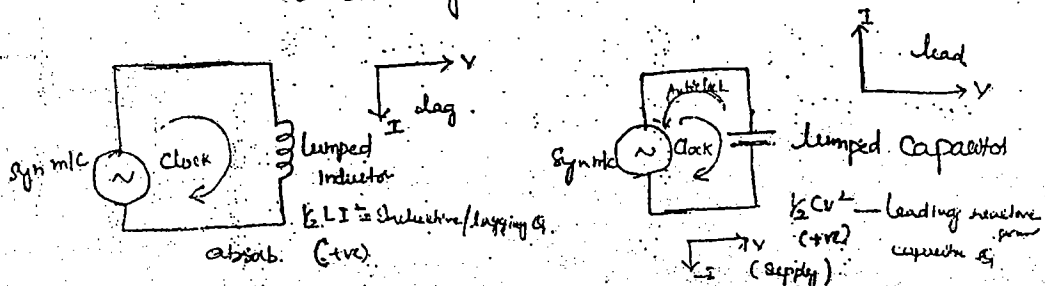 V
I
lag
Syn m/c
~
Clock
lumped
Inductor
½ L I² = Inductive/lagging Q.
absorb. (+ve)
I
lead
V
Anticlock
Syn m/c
~
Clock
lumped Capacitor
½ CV² — leading reactive power
(+ve)
capacitive Q
V
-I
(Supply)